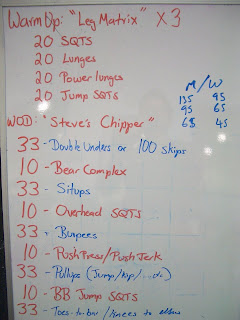 Warm Up: "Leg Matrix" X 3
20 SQTS
20 Lunges
20 Power lunges
20 Jump SQTS
M/W
135 95
95 65
65 45
WOD: "Steve's Chipper"
33 - Double Unders or 100 skips
10 - Bear Complex
33 - Situps
10 - Overhead SQTS
33 - Burpees
10 - Push Press/Push Jerk
33 - Pullups (Jump/Kip/...etc)
10 - BB Jump SQTS
33 - Toes-to-bar / Knees to elbow